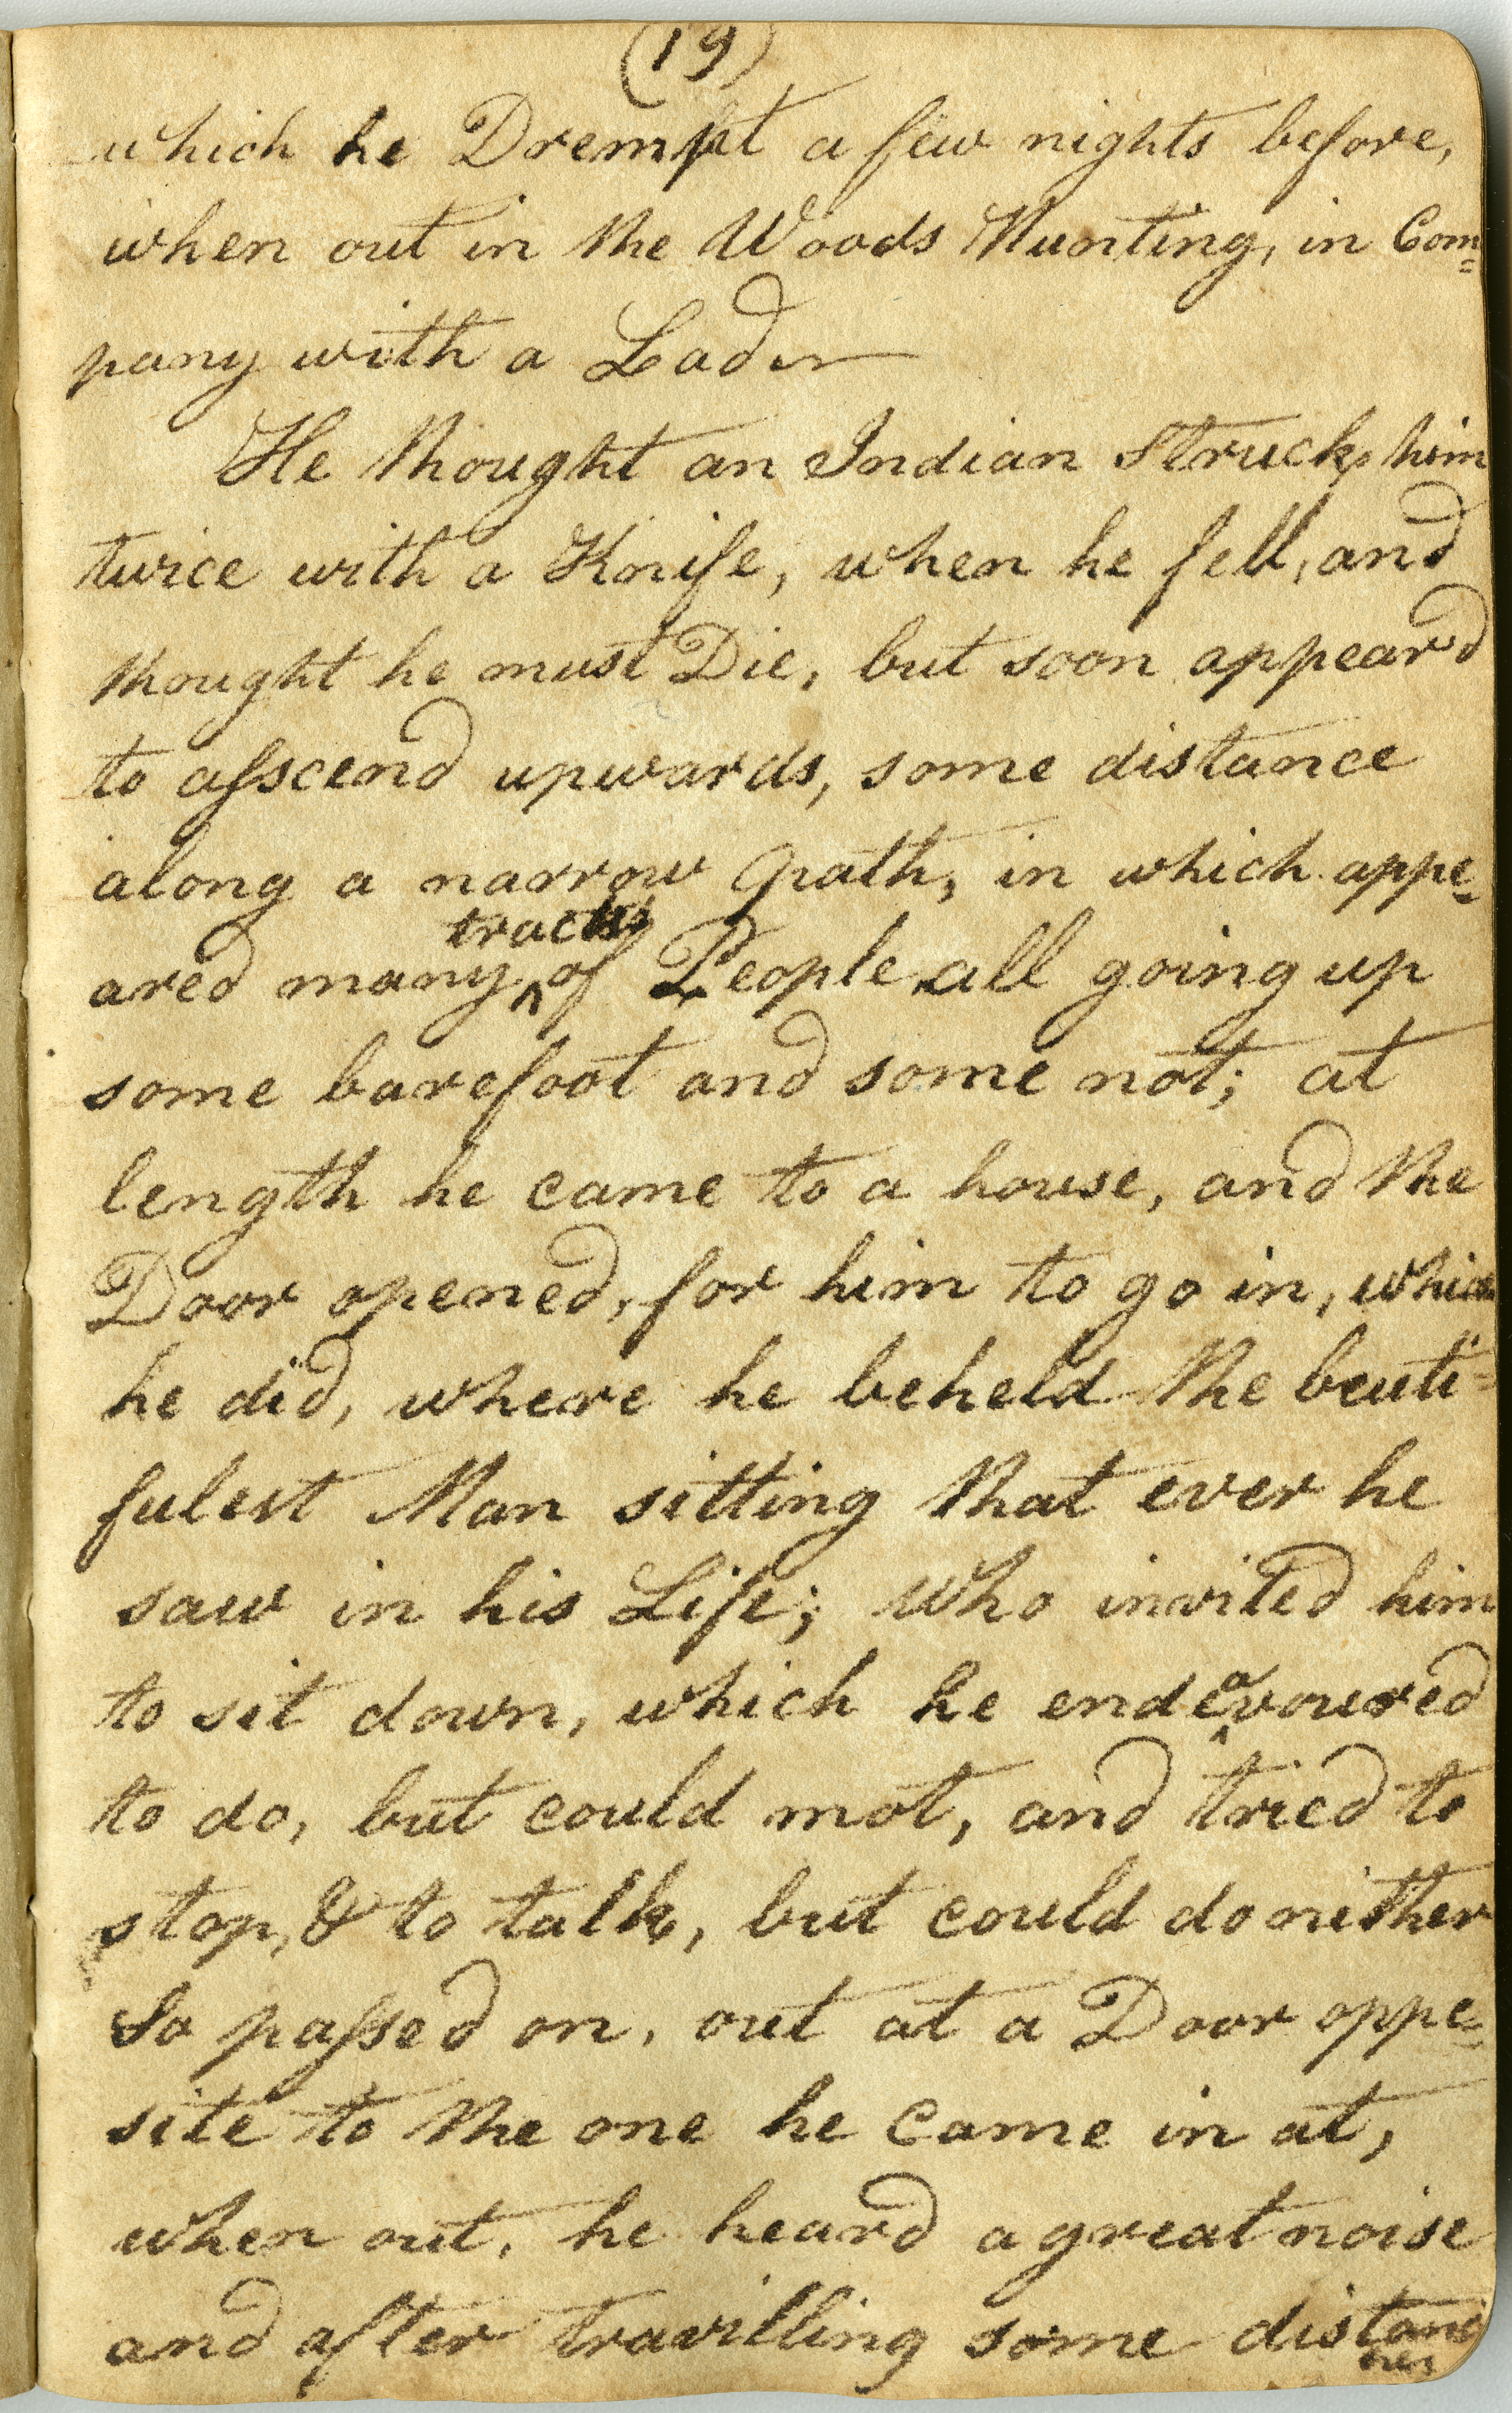 (19)
which he Drempt a few nights before,
when out in the Woods Hunting, in Com=
pany with a Lad
He thought an Indian Struck him
twice with a Knife, when he fell, and
thought he must Die, but soon appeard
to asscend upwards, some distance
along a narrow path, in which appe=
tracks
ared many ^ of People all going up
some barefoot and some not; at
length he came to a house, and the
Door opened, for him to go in, which
he did, where he beheld the beuti=
fulest Man sitting that ever he
saw in his Life; who invited him
to sit down, which he endeavoured
to do, but could not, and tried to
stop, & to talk, but could do neither
So passed on, out at a Door oppe=
site to the one he came in at,
when out, he heard a great noise
and after travilling some distance